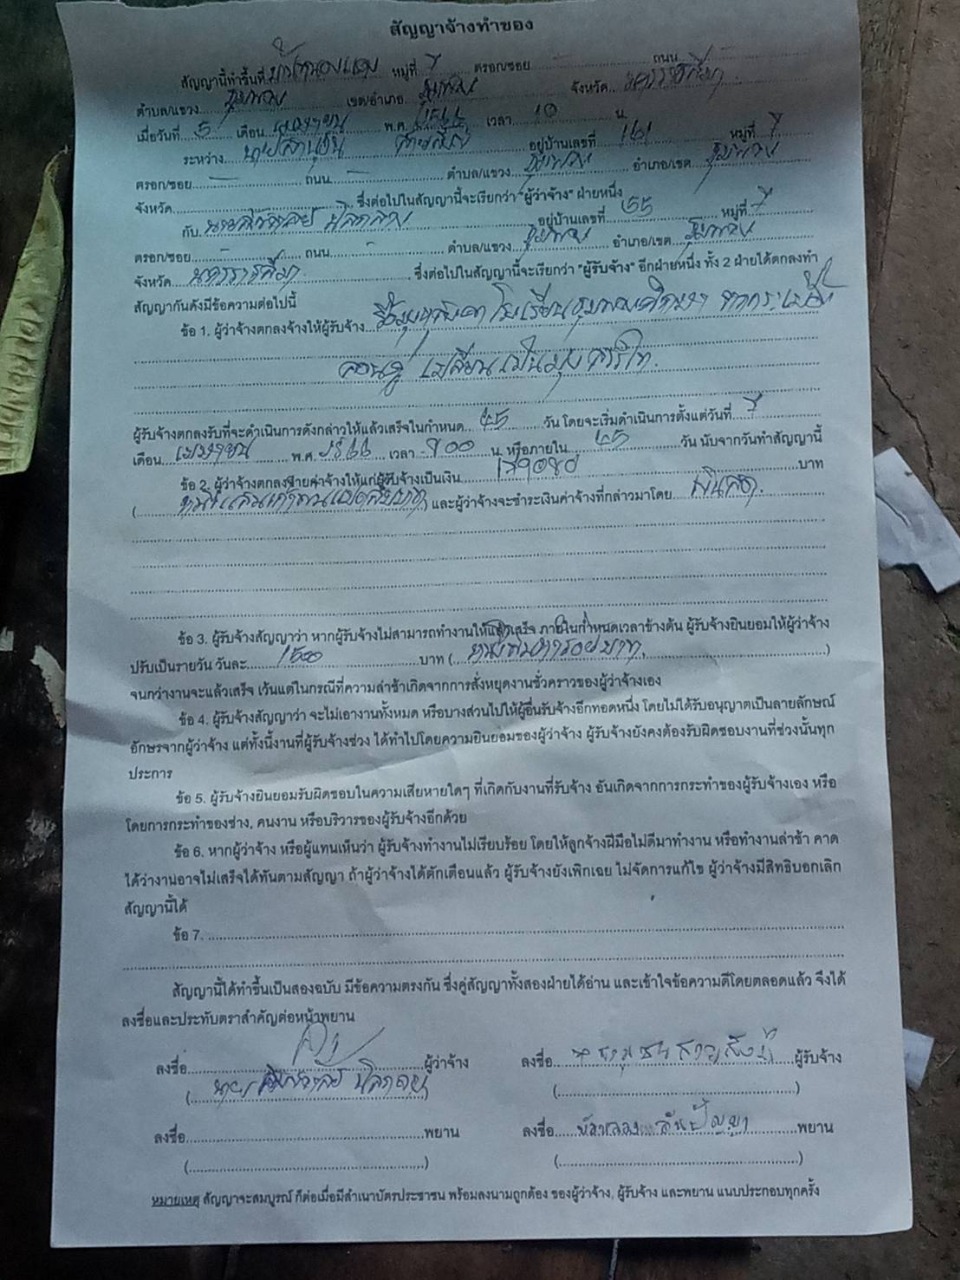 สัญญาจ้างทำของ
สัญญานี้ทำขึ้นที่ บ้านหนองแวง หมู่ที่ 7 ตรอก/ซอย ถนน
ตำบล/แขวง ชุมพวง เขต/อำเภอ ชุมพวง จังหวัด นครราชสีมา
เมื่อวันที่ 5 เดือน เมษายน พ.ศ. 2566 เวลา 10 น.
ระหว่าง อยู่บ้านเลขที่ หมู่ที่ 7
ตรอก/ซอย - ถนน - ตำบล/แขวง ชุมพวง อำเภอ/เขต ชุมพวง
จังหวัด ซึ่งต่อไปในสัญญานี้จะเรียกว่า "ผู้ว่าจ้าง" ฝ่ายหนึ่ง
กับ อยู่บ้านเลขที่ 55 หมู่ที่ 7
ตรอก/ซอย - ถนน - ตำบล/แขวง ชุมพวง อำเภอ/เขต ชุมพวง
จังหวัด นครราชสีมา ซึ่งต่อไปในสัญญานี้จะเรียกว่า "ผู้รับจ้าง" อีกฝ่ายหนึ่ง ทั้ง 2 ฝ่ายได้ตกลงทำ
สัญญากันดังมีข้อความต่อไปนี้
ข้อ 1. ผู้ว่าจ้างตกลงจ้างให้ผู้รับจ้าง โรงเรียนชุมพวงศึกษา จากกระเบื้อง
ลอนคู่ เปลี่ยนเป็น
ผู้รับจ้างตกลงรับที่จะดำเนินการดังกล่าวให้แล้วเสร็จในกำหนด 45 วัน โดยจะเริ่มดำเนินการตั้งแต่วันที่ 7
เดือน เมษายน พ.ศ. 2566 เวลา น. หรือภายใน 45 วัน นับจากวันทำสัญญานี้
ข้อ 2. ผู้ว่าจ้างตกลงจ่ายค่าจ้างให้แก่ผู้รับจ้างเป็นเงิน บาท
( ) และผู้ว่าจ้างจะชำระเงินค่าจ้างที่กล่าวมาโดย เงินสด
ข้อ 3. ผู้รับจ้างสัญญาว่า หากผู้รับจ้างไม่สามารถทำงานให้แล้วเสร็จ ภายในกำหนดเวลาข้างต้น ผู้รับจ้างยินยอมให้ผู้ว่าจ้าง
ปรับเป็นรายวัน วันละ 1500 บาท ( หนึ่งพันห้าร้อยบาท )
จนกว่างานจะแล้วเสร็จ เว้นแต่ในกรณีที่ความล่าช้าเกิดจากการสั่งหยุดงานชั่วคราวของผู้ว่าจ้างเอง
ข้อ 4. ผู้รับจ้างสัญญาว่า จะไม่เอางานทั้งหมด หรือบางส่วนไปให้ผู้อื่นรับจ้างอีกทอดหนึ่ง โดยไม่ได้รับอนุญาตเป็นลายลักษณ์
อักษรจากผู้ว่าจ้าง แต่ทั้งนี้งานที่ผู้รับจ้างช่วง ได้ทำไปโดยความยินยอมของผู้ว่าจ้าง ผู้รับจ้างยังคงต้องรับผิดชอบงานที่ช่วงนั้นทุก
ประการ
ข้อ 5. ผู้รับจ้างยินยอมรับผิดชอบในความเสียหายใดๆ ที่เกิดกับงานที่รับจ้าง อันเกิดจากการกระทำของผู้รับจ้างเอง หรือ
โดยการกระทำของช่าง, คนงาน หรือบริวารของผู้รับจ้างอีกด้วย
ข้อ 6. หากผู้ว่าจ้าง หรือผู้แทนเห็นว่า ผู้รับจ้างทำงานไม่เรียบร้อย โดยให้ลูกจ้างฝีมือไม่ดีมาทำงาน หรือทำงานล่าช้า คาด
ได้ว่างานอาจไม่เสร็จได้ทันตามสัญญา ถ้าผู้ว่าจ้างได้ตักเตือนแล้ว ผู้รับจ้างยังเพิกเฉย ไม่จัดการแก้ไข ผู้ว่าจ้างมีสิทธิบอกเลิก
สัญญานี้ได้
ข้อ 7.
สัญญานี้ได้ทำขึ้นเป็นสองฉบับ มีข้อความตรงกัน ซึ่งคู่สัญญาทั้งสองฝ่ายได้อ่าน และเข้าใจข้อความดีโดยตลอดแล้ว จึงได้
ลงชื่อและประทับตราสำคัญต่อหน้าพยาน
ลงชื่อ ผู้ว่าจ้าง ลงชื่อ ผู้รับจ้าง
( ) ( )
ลงชื่อ พยาน ลงชื่อ พยาน
( ) ( )
หมายเหตุ สัญญาจะสมบูรณ์ ก็ต่อเมื่อมีสำเนาบัตรประชาชน พร้อมลงนามถูกต้อง ของผู้ว่าจ้าง, ผู้รับจ้าง และพยาน แนบประกอบทุกครั้ง